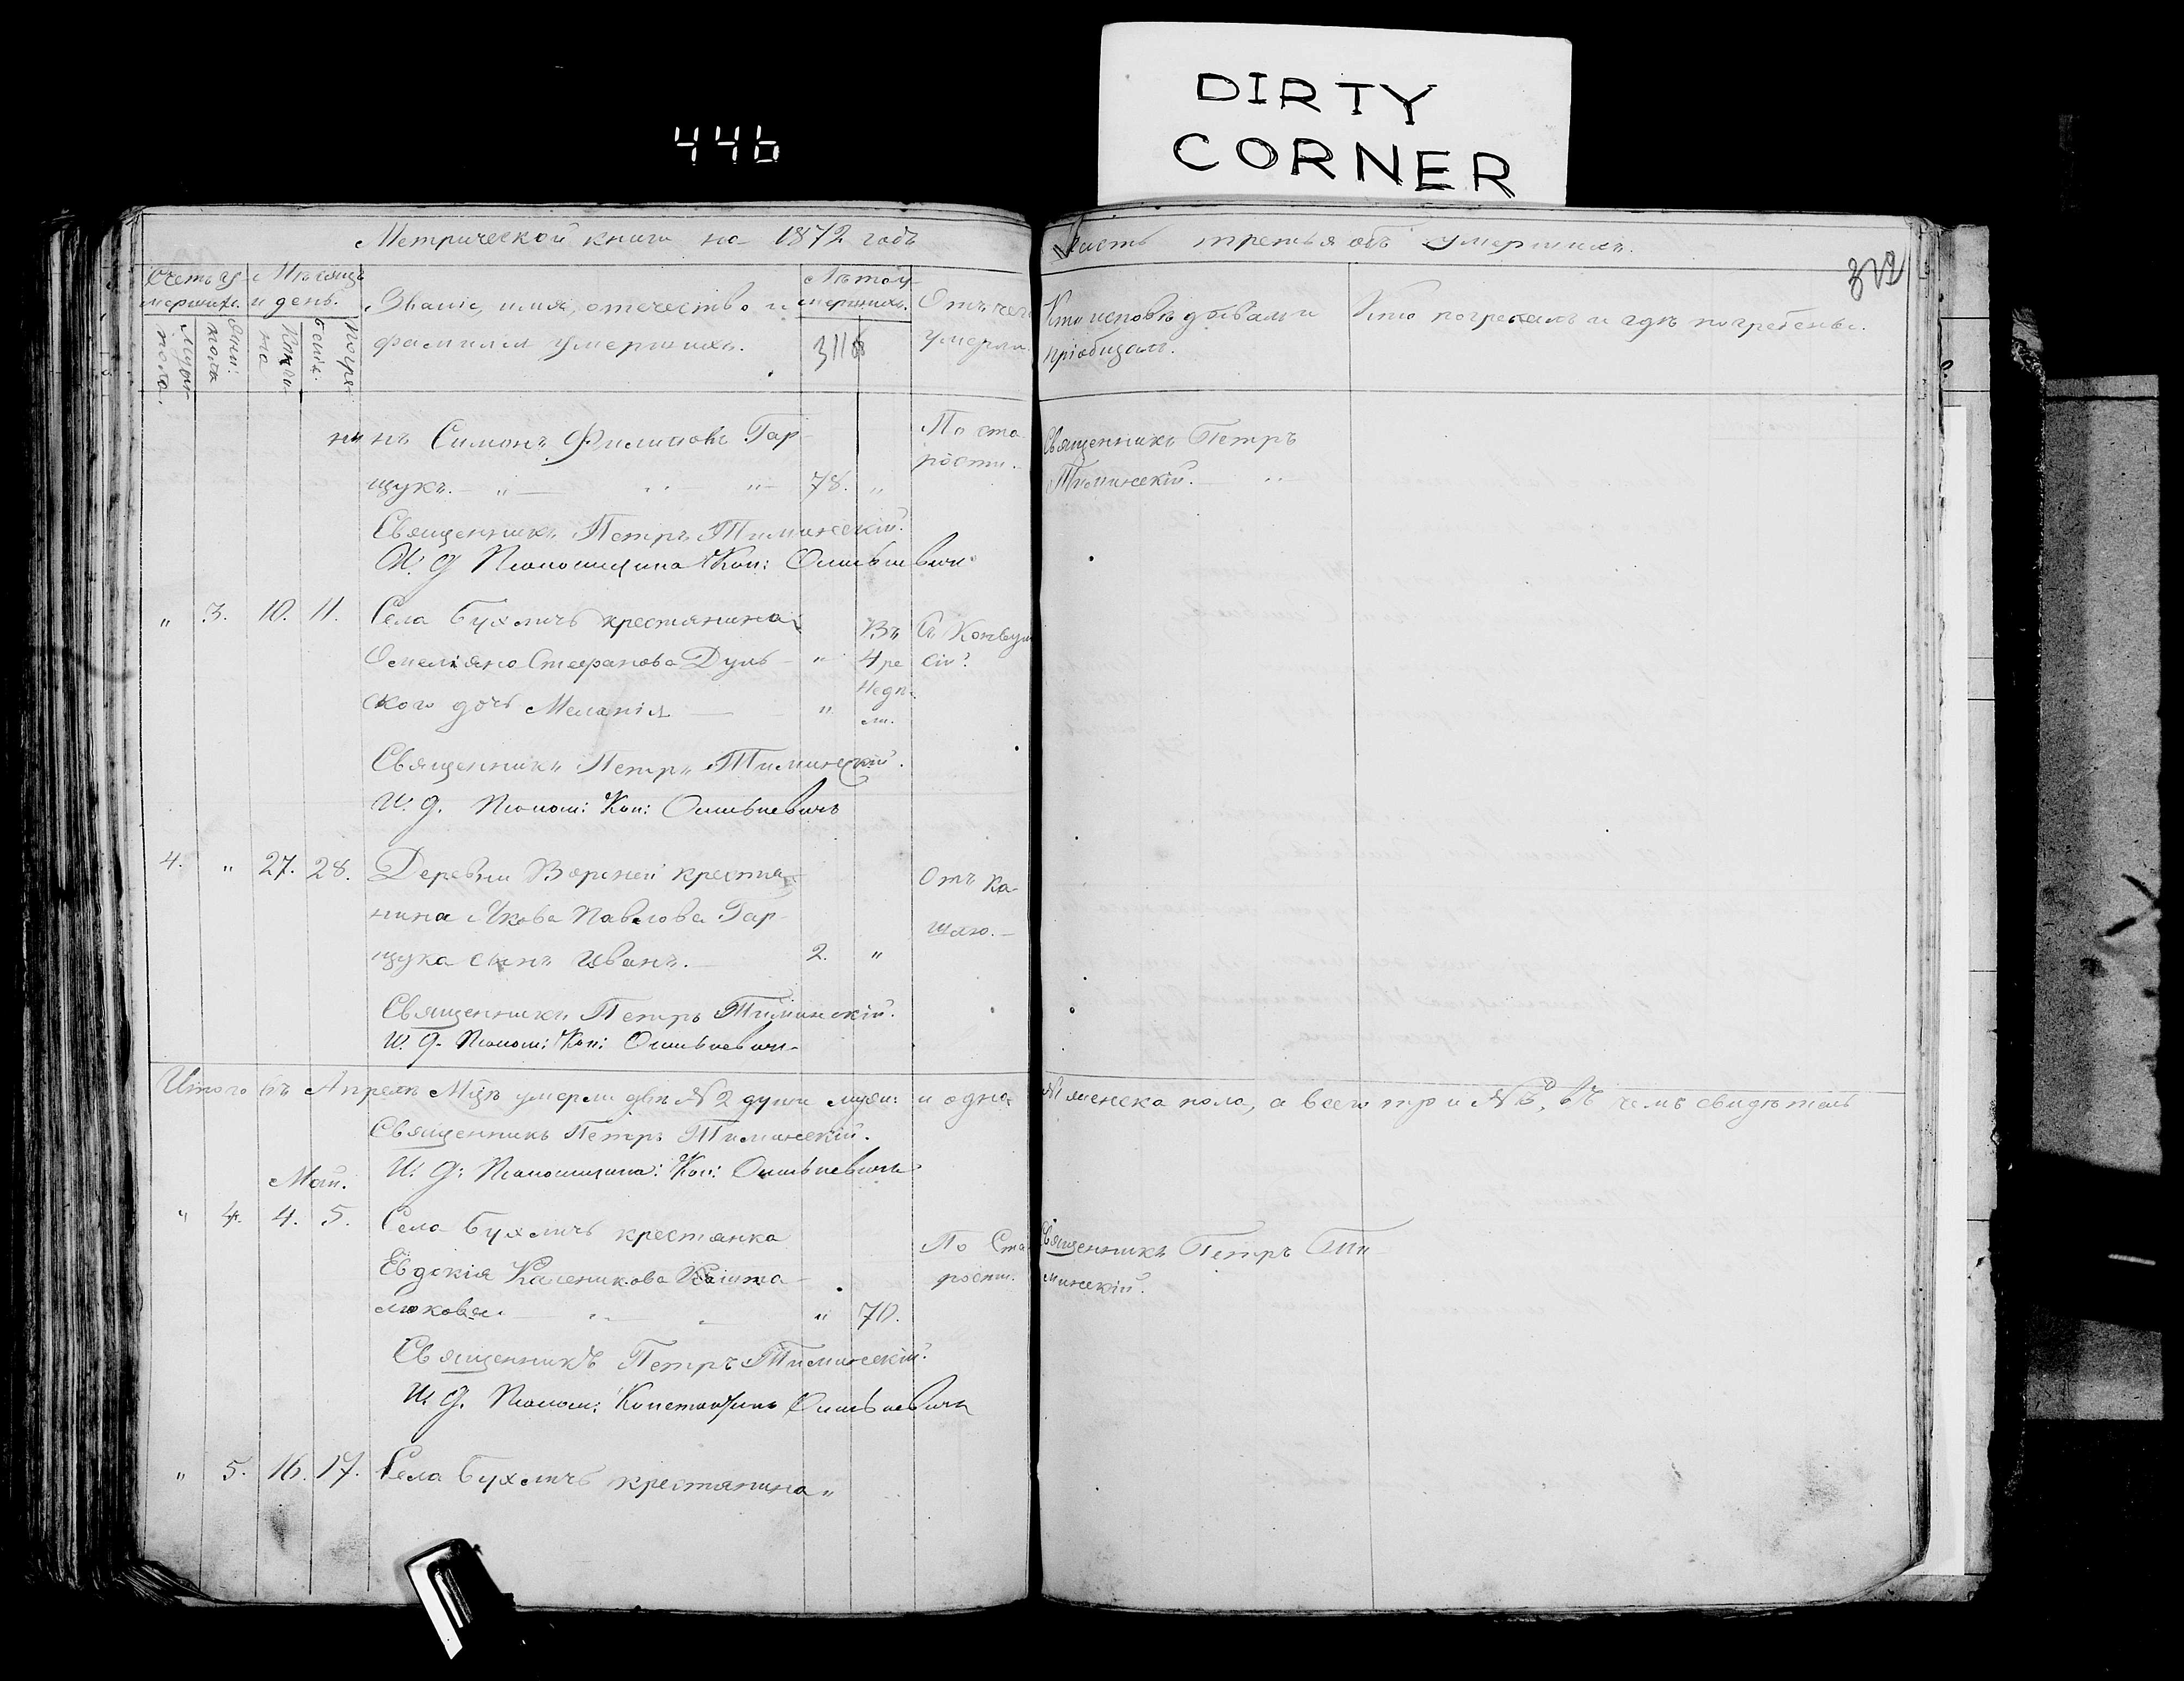 446
DIRTY
CORNER
Метрической книги на 1872 годъ
Часть третья объ умершихъ.
322
Счетъ умершихъ.
Мужск. пола.
Жен: пола
Мѣсяцъ и день.
Кончины
Погребенія.
Званіе, имя, отечество и
фамилія умершихъ.
Лѣта умершихъ.
3118
Отъ чего
умерли.
Кто исповѣдывалъ и
пріобщалъ.
Кто погребалъ и гдѣ погребены.
нинъ Симонъ Филиповъ Гар-
щукъ. 78. "
По ста-
рости.
Священникъ Петръ
Тиминскій.
Священникъ Петръ Тиминскій.
И. д Псаломщика Кон:
" 3. 10. 11. Села Бухличъ крестянина
Стефанова Дуль-
ского дочь Меланія
" Въ
4ре
Недѣ-
ли.
Съ Конвул
сій.
Священникъ Петръ Тиминскій.
И. д. Псалом: Кон:
4. " 27. 28. Деревни крестья-
нина Якова Павлова Гар-
щука сынъ Иванъ. 2. "
Отъ ка-
шлю.
Священникъ Петръ Тиминскій.
И. д. Псалом: Кон:
Итого въ Апрелѣ Мцѣ умерли двѣ № 2 души мужи: и одна
женска пола, а всего три № 3, въ чемъ свидѣтель
Священникъ Петръ Тиминскій.
И. д: Псаломщика: Кон:
Май.
" 4. 4. 5. Села Бухличъ крестянка
Евдокія
люкова. " 70.
По Ста-
рости.
Священникъ Петръ Ти-
минскій.
Священникъ Петръ Тиминскій.
И. д. Псалом: Константинъ
" 5. 16. 17. Села Бухличъ крестянина "